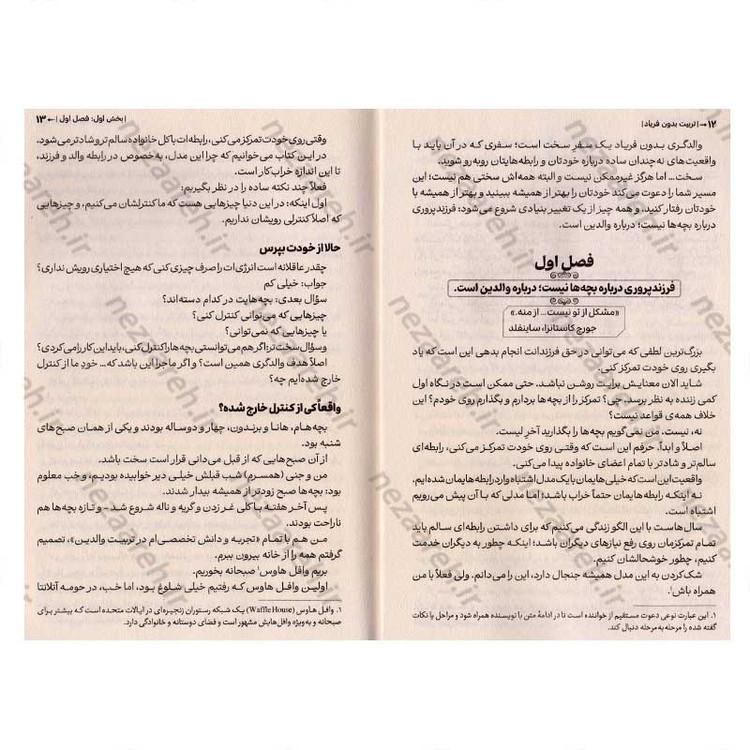 ۱۲ → | تربیت بدون فریاد |
والدگری بدون فریاد یک سفر سخت است؛ سفری که در آن باید با
واقعیت‌های نه‌چندان ساده درباره خودتان و رابطه‌هایتان روبه‌رو شوید.
سخت... اما هرگز غیرممکن نیست و البته همه‌اش سختی هم نیست؛ این
مسیر شما را دعوت می‌کند خودتان را بهتر از همیشه ببینید و بهتر از همیشه با
خودتان رفتار کنید، و همه چیز از یک تغییر بنیادی شروع می‌شود: فرزندپروری
درباره بچه‌ها نیست؛ درباره والدین است.
فصل اول
فرزندپروری درباره بچه‌ها نیست؛ درباره والدین است.
«مشکل از تو نیست... از منه.»
جورج کاستانزا، ساینفلد
بزرگ‌ترین لطفی که می‌توانی در حق فرزندانت انجام بدهی این است که یاد
بگیری روی خودت تمرکز کنی.
شاید الان معنایش برایت روشن نباشد. حتی ممکن است در نگاه اول
کمی زننده به نظر برسد. چی؟ تمرکز را از بچه‌ها بردارم و بگذارم روی خودم؟ این
خلاف همه‌ی قواعد نیست؟
نه، نیست. من نمی‌گویم بچه‌ها را بگذارید آخرِ لیست.
اصلاً و ابداً. حرفم این است که وقتی روی خودت تمرکز می‌کنی، رابطه‌ای
سالم‌تر و شادتر با تمام اعضای خانواده پیدا می‌کنی.
واقعیت این است که خیلی‌هایمان با یک مدل اشتباه وارد رابطه‌هایمان شده‌ایم.
نه اینکه رابطه‌هایمان حتماً خراب باشد؛ اما مدلی که با آن پیش می‌رویم
اشتباه است.
سال‌هاست با این الگو زندگی می‌کنیم که برای داشتن رابطه‌ای سالم باید
تمام تمرکزمان روی رفع نیازهای دیگران باشد؛ اینکه چطور به دیگران خدمت
کنیم، چطور خوشحالشان کنیم.
شک‌کردن به این مدل همیشه جنجال دارد، این را می‌دانم. ولی فعلاً با من
همراه باش¹.
۱. این عبارت نوعی دعوت مستقیم از خواننده است تا در ادامهٔ متن با نویسنده همراه شود و مراحل یا نکات
گفته شده را مرحله‌به‌مرحله دنبال کند.
| بخش اول: فصل اول | ← ۱۳
وقتی روی خودت تمرکز می‌کنی، رابطه‌ات با کل خانواده سالم‌تر و شادتر می‌شود.
در این کتاب می‌خوانیم که چرا این مدل، به‌خصوص در رابطه والد و فرزند،
تا این اندازه خراب‌کار است.
فعلاً چند نکته ساده را در نظر بگیریم:
اول اینکه: در این دنیا چیزهایی هست که ما کنترلشان می‌کنیم، و چیزهایی
که اصلاً کنترلی رویشان نداریم.
حالا از خودت بپرس
چقدر عاقلانه است انرژی‌ات را صرف چیزی کنی که هیچ اختیاری رویش نداری؟
جواب: خیلی کم
سؤال بعدی: بچه‌هایت در کدام دسته‌اند؟
چیزهایی که می‌توانی کنترل کنی؟
یا چیزهایی که نمی‌توانی؟
و سؤال سخت‌تر: اگر هم می‌توانستی بچه‌ها را کنترل کنی، باید این کار را می‌کردی؟
اصلاً هدف والدگری همین است؟ و اگر ماجرا این باشد که... خودِ ما از کنترل
خارج شده‌ایم چه؟
واقعاً کی از کنترل خارج شده؟
بچه‌هام، هانا و برندون، چهار و دوساله بودند و یکی از همان صبح‌های
شنبه بود.
از آن صبح‌هایی که از قبل می‌دانی قرار است سخت باشد.
من و جنی (همسرم) شب قبلش خیلی دیر خوابیده بودیم، و خب معلوم
بود: بچه‌ها صبح زودتر از همیشه بیدار شدند.
پس آخر هفته با کلی غر زدن و گریه و ناله شروع شد - و تازه بچه‌ها هم
ناراحت بودند.
من هم با تمام «تجربه و دانش تخصصی‌ام در تربیت والدین»، تصمیم
گرفتم همه را از خانه بیرون ببرم.
بریم وافل هاوس¹ صبحانه بخوریم.
اولین وافل هاوس که رفتیم خیلی شلوغ بود، اما خب، در حومه آتلانتا
۱. وافل هاوس (Waffle House) یک شبکه رستوران زنجیره‌ای در ایالات متحده است که بیشتر برای
صبحانه و به‌ویژه وافل‌هایش مشهور است و فضای دوستانه و خانوادگی دارد.
nezaareh.ir